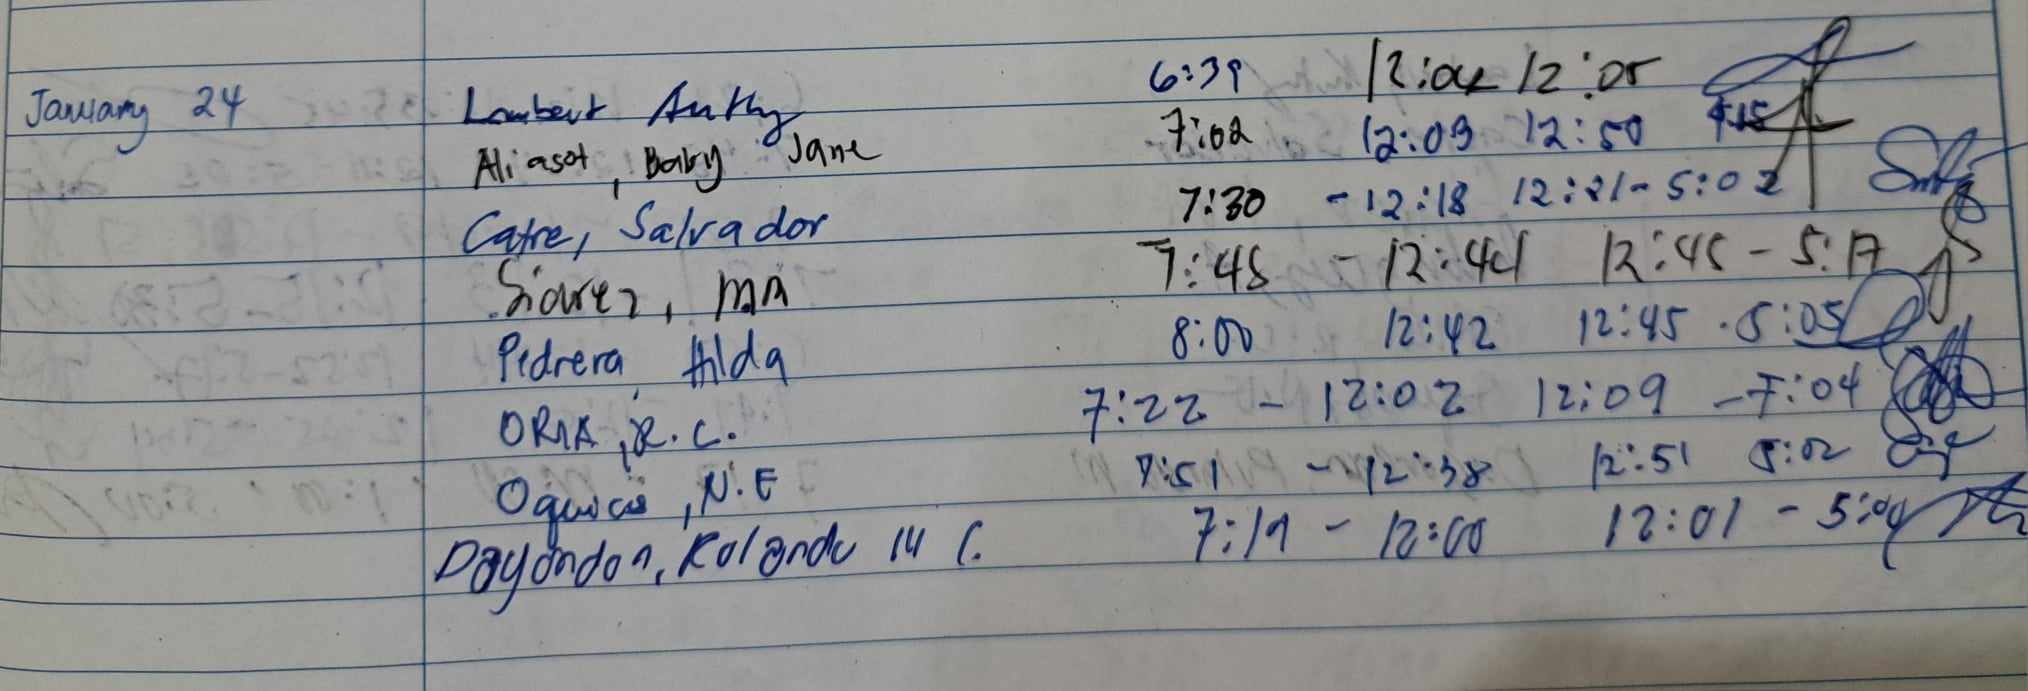 January 24 Lambert Anthy 6:39 12:04 12:05
Aliasot, Baby Jane 7:02 12:09 12:50
Catre, Salvador 7:30 - 12:18 12:21 - 5:02
Siarez, MA 7:45 - 12:44 12:45 - 5:17
Pedrera Hilda 8:00 12:42 12:45 . 5:05
ORIA, R.C. 7:22 - 12:02 12:09 - 7:04
N.E 7:51 - 12:38 12:51 5:02
Dayondon, Rolando III C. 7:19 - 12:00 12:01 - 5:04